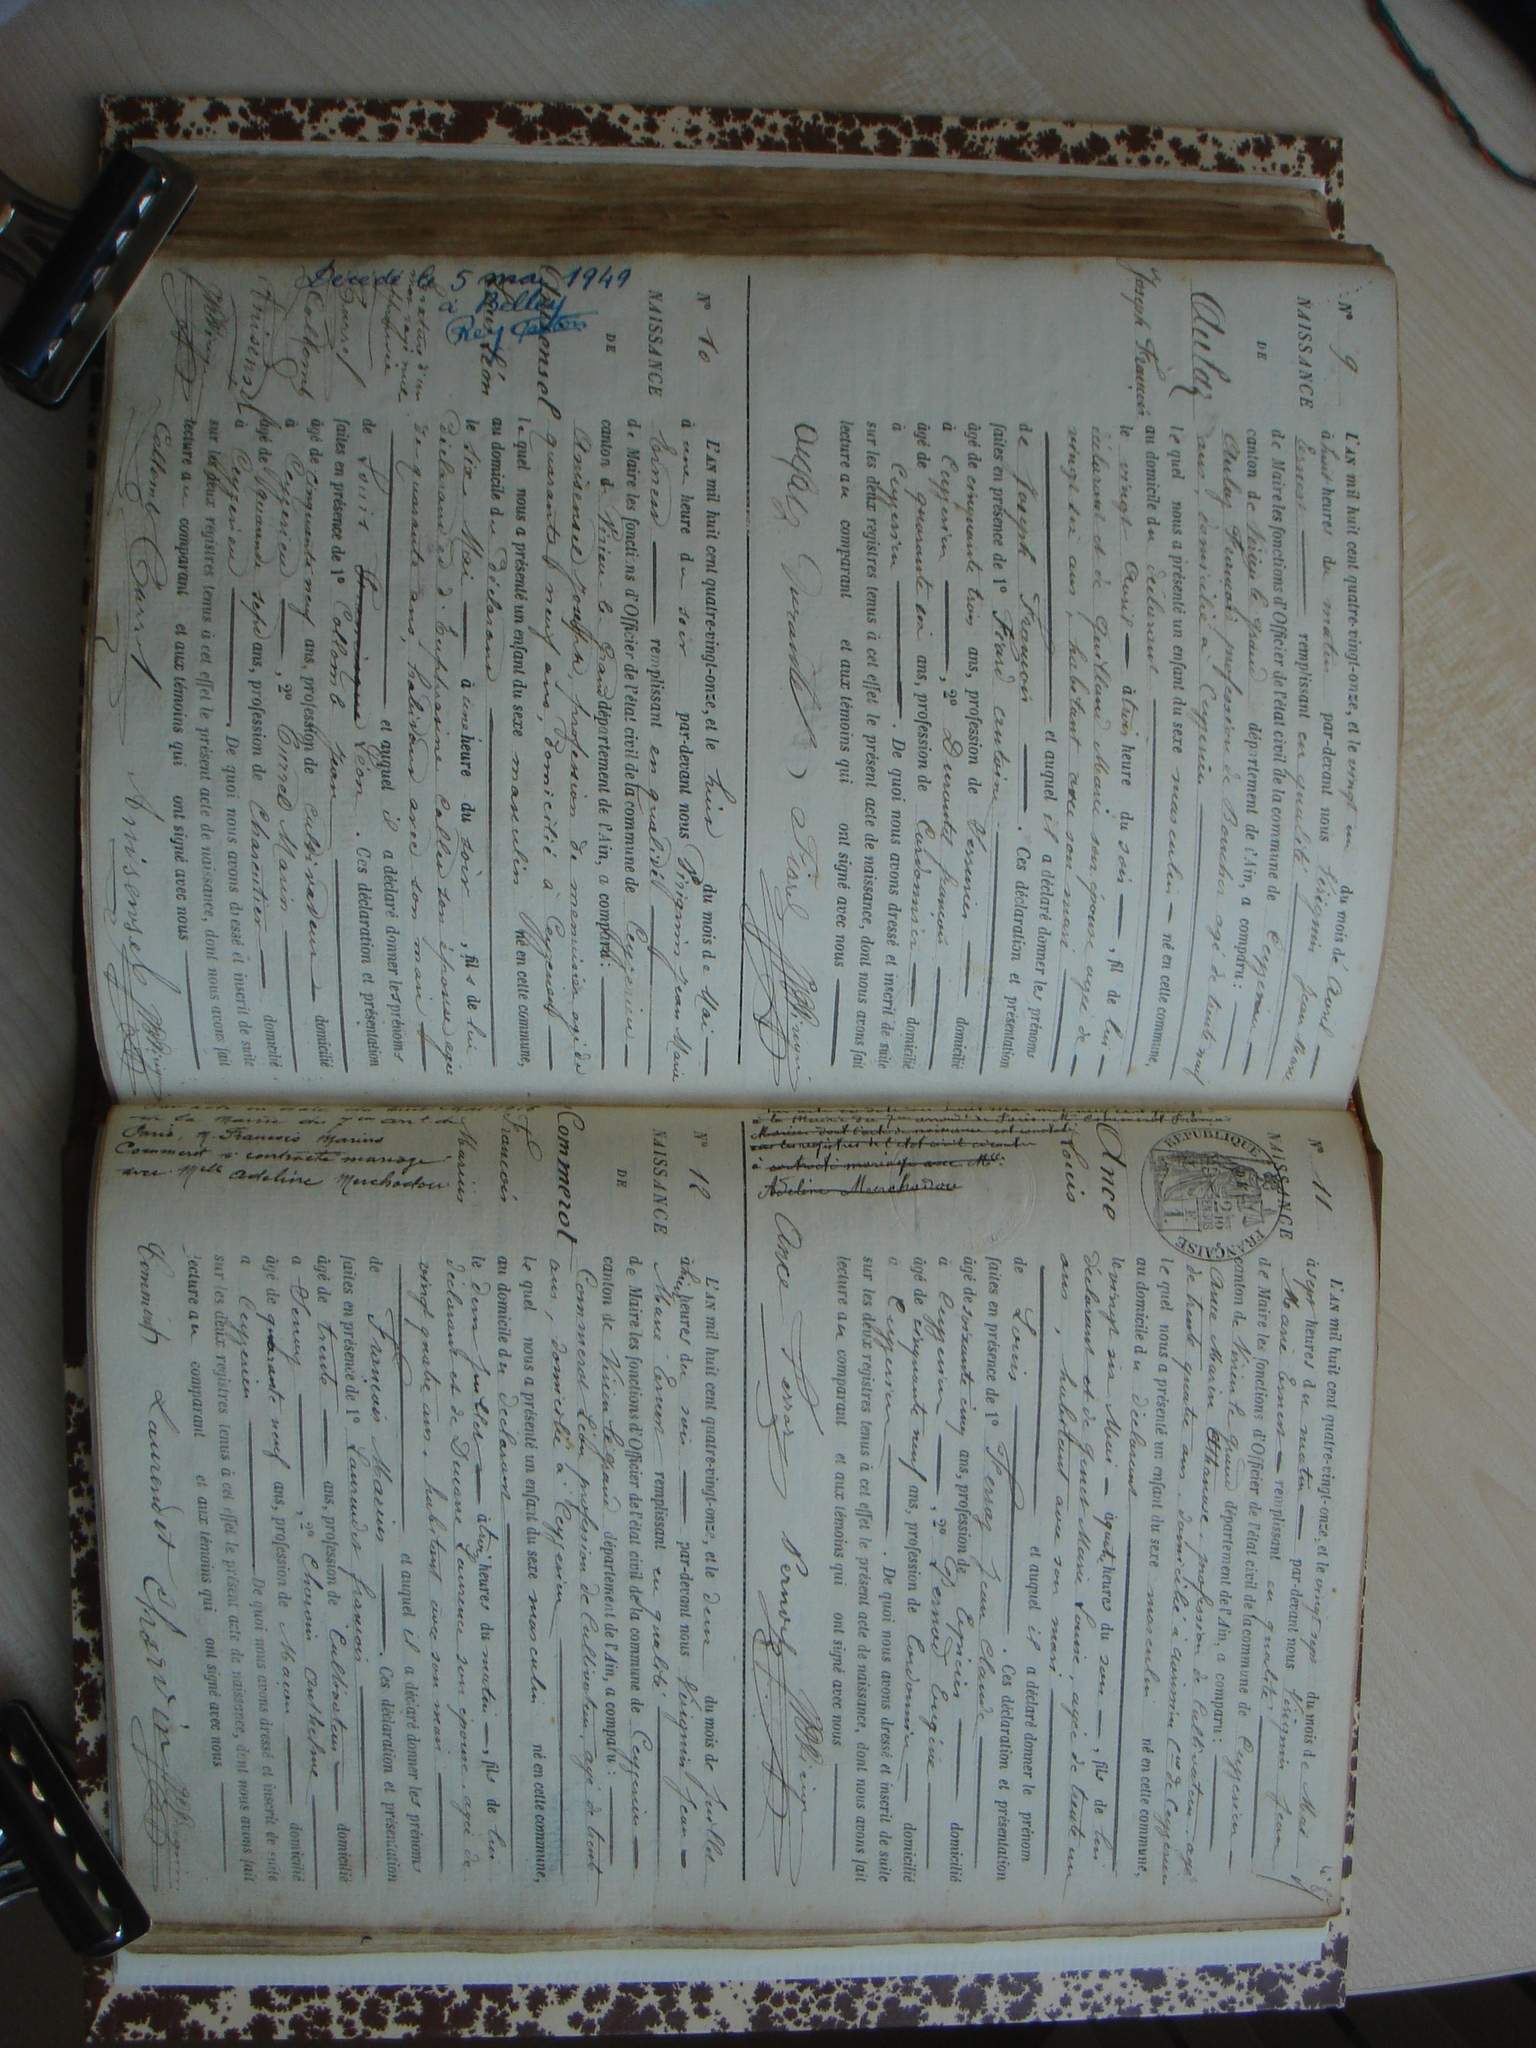 N° 9
NAISSANCE
DE
Aulaz
Joseph François
L'AN mil huit cent quatre-vingt-onze, et le vingt un du mois de Avril
à huit heures du matin par-devant nous Jean Marie
remplissant en qualité
de Maire les fonctions d'Officier de l'état civil de la commune de Ceyzérieu
canton de Virieu le grand département de l'Ain, a comparu :
Aulaz François profession de Boucher agé de trente neuf
ans, domicilié à Ceyzérieu
lequel nous a présenté un enfant du sexe masculin né en cette commune,
au domicile du déclarant
le vingt Avril à trois heure du soir, fil de lui
déclarant et de Marie son épouse agée de
vingt six ans, habitant avec son mari
et auquel il a déclaré donner les prénoms
de Joseph François. Ces déclaration et présentation
faites en présence de 1° Fiard
âgé de cinquante trois ans, profession de domicilié
à Ceyzérieu, 2° Durantet françois
âgé de quarante ans, profession de Cordonnier domicilié
à Ceyzérieu. De quoi nous avons dressé et inscrit de suite
sur les deux registres tenus à cet effet le présent acte de naissance, dont nous avons fait
lecture au comparant et aux témoins qui ont signé avec nous
Aulaz Durantet Fiard
N° 10
NAISSANCE
DE
Louis Léon
Décédé le 5 mai 1949
à Belley
L'AN mil huit cent quatre-vingt-onze, et le huit du mois de Mai
à une heure du soir par-devant nous Jean Marie
remplissant en qualité
de Maire les fonctions d'Officier de l'état civil de la commune de Ceyzérieu
canton de Virieu le Grand département de l'Ain, a comparu :
Anisensel Joseph, profession de menuisier agé de
quarante neuf ans, domicilié à Ceyzérieu
lequel nous a présenté un enfant du sexe masculin né en cette commune,
au domicile du déclarant
le six Mai à une heure du soir, fils de lui
déclarant et d' son épouse agée
de quarante ans, habitant avec son mari
et auquel il a déclaré donner les prénoms
de Louis Léon. Ces déclaration et présentation
faites en présence de 1° Colomb Jean
âgé de cinquante neuf ans, profession de cultivateur domicilié
à Ceyzérieu, 2° Curret Marin
âgé de quarante sept ans, profession de Charpentier domicilié
à Ceyzérieu. De quoi nous avons dressé et inscrit de suite
sur les deux registres tenus à cet effet le présent acte de naissance, dont nous avons fait
lecture au comparant et aux témoins qui ont signé avec nous
Collomb Curret Anisensel
N° 11
NAISSANCE
DE
RÉPUBLIQUE FRANÇAISE
Ance
Louis
L'AN mil huit cent quatre-vingt-onze, et le vingt sept du mois de Mai
à sept heures du matin par-devant nous Jean
Marie remplissant en qualité
de Maire les fonctions d'Officier de l'état civil de la commune de Ceyzérieu
canton de Virieu le grand département de l'Ain, a comparu :
Ance Marin Athanase, profession de Cultivateur, agé
de trente quatre ans, domicilié à de Ceyzérieu
lequel nous a présenté un enfant du sexe masculin né en cette commune,
au domicile du déclarant
le vingt six Mai à quatre heures du soir, fils de lui
déclarant et de Marie Louise, agée de trente un
ans, habitant avec son mari
et auquel il a déclaré donner le prénom
de Louis. Ces déclaration et présentation
faites en présence de 1° Perraz Jean Claude
âgé de soixante cinq ans, profession de Epicier domicilié
à Ceyzérieu, 2° Pernod Eugène
âgé de cinquante neuf ans, profession de Cordonnier domicilié
à Ceyzérieu. De quoi nous avons dressé et inscrit de suite
sur les deux registres tenus à cet effet le présent acte de naissance, dont nous avons fait
lecture au comparant et aux témoins qui ont signé avec nous
Ance Perraz Pernod
à contracté mariage avec Mlle
Adeline Merchadou
N° 12
NAISSANCE
DE
Commerot
François
Marius
à la Mairie du
Paris, M. François Marius
Commerot a contracté mariage
avec Melle Adeline Merchadou
L'AN mil huit cent quatre-vingt-onze, et le deux du mois de Juillet
à heures du soir par-devant nous Jean
Marie remplissant en qualité
de Maire les fonctions d'Officier de l'état civil de la commune de Ceyzérieu
canton de Virieu le grand département de l'Ain, a comparu :
Commerot Léon profession de Cultivateur, agé de trente
ans, domicilié à Ceyzérieu
lequel nous a présenté un enfant du sexe masculin né en cette commune,
au domicile du déclarant
le deux Juillet à trois heures du matin, fils de lui
déclarant et de Laurence son épouse, agée de
vingt quatre ans, habitant avec son mari
et auquel il a déclaré donner les prénoms
de François Marius. Ces déclaration et présentation
faites en présence de 1° Laurendet françois
âgé de trente ans, profession de Cultivateur domicilié
à, 2° Charvin Anthelme
âgé de quarante neuf ans, profession de Maçon domicilié
à Ceyzérieu De quoi nous avons dressé et inscrit de suite
sur les deux registres tenus à cet effet le présent acte de naissance, dont nous avons fait
lecture au comparant et aux témoins qui ont signé avec nous
Commerot Laurendet Charvin